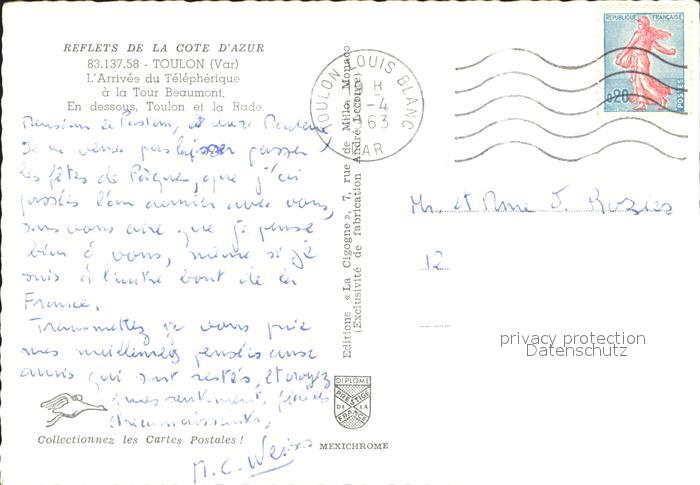 REFLETS DE LA COTE D'AZUR
83.137.58 - TOULON (Var)
L'Arrivée du Téléphérique
à la Tour Beaumont.
En dessous, Toulon et la Rade
Je ne veux pas laisser passer
les fêtes de Pâques, que j'ai
passées l'an dernier avec vous,
sans vous dire que je pense
bien à vous, même si je
suis à l'autre bout de la
France.
Transmettez je vous prie
mes meilleures pensées aux
amis qui sont restés, et croyez
à mes sentiments
et reconnaissants,
M. C. Weiss
Collectionnez les Cartes Postales !
Editions « La Cigogne », 7, rue de Millo, Monaco
(Exclusivité de fabrication André Leconte)
DIPLOME
PRESTIGE
DE LA
FRANCE
MEXICHROME
TOULON LOUIS BLANC
H
-4
63
VAR
REPUBLIQUE FRANÇAISE
0,20
POSTES
Mr. et Mme J. Rozies
12
privacy protection
Datenschutz